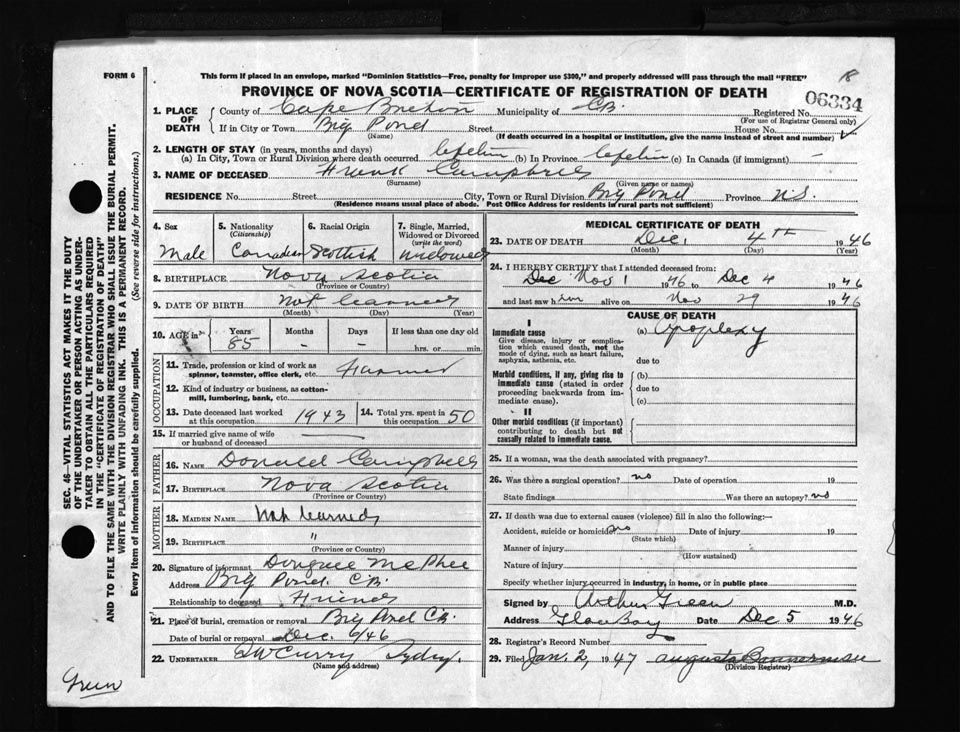 FORM 6
This form if placed in an envelope, marked "Dominion Statistics—Free, penalty for improper use $300," and properly addressed will pass through the mail "FREE"
PROVINCE OF NOVA SCOTIA—CERTIFICATE OF REGISTRATION OF DEATH
06334
SEC. 46—VITAL STATISTICS ACT MAKES IT THE DUTY
OF THE UNDERTAKER OR PERSON ACTING AS UNDER-
TAKER TO OBTAIN ALL THE PARTICULARS REQUIRED
IN THE "CERTIFICATE OF REGISTRATION OF DEATH"
AND TO FILE THE SAME WITH THE DIVISION REGISTRAR WHO SHALL ISSUE THE BURIAL PERMIT.
WRITE PLAINLY WITH UNFADING INK. THIS IS A PERMANENT RECORD.
Every item of information should be carefully supplied. (See reverse side for instructions.)
1. PLACE OF DEATH
County of Cape Breton Municipality of C.B. Registered No.
(For use of Registrar General only)
If in City or Town Big Pond Street House No.
(Name) (If death occurred in a hospital or institution, give the name instead of street and number)
2. LENGTH OF STAY (in years, months and days)
(a) In City, Town or Rural Division where death occurred (b) In Province (c) In Canada (if immigrant) —
3. NAME OF DECEASED Frank Campbell
(Surname) (Given name or names)
RESIDENCE No. Street City, Town or Rural Division Big Pond Province N.S.
(Residence means usual place of abode. Post Office Address for residents in rural parts not sufficient)
4. Sex
Male
5. Nationality
(Citizenship)
Canadian
6. Racial Origin
Scottish
7. Single, Married,
Widowed or Divorced
(write the word)
widowed
8. BIRTHPLACE Nova Scotia
(Province or Country)
9. DATE OF BIRTH Not learned
(Month) (Day) (Year)
10. AGE in
Years 85 Months – Days – If less than one day old
hrs. or min.
OCCUPATION
11. Trade, profession or kind of work as
spinner, teamster, office clerk, etc. Farmer
12. Kind of industry or business, as cotton-
mill, lumbering, bank, etc.
13. Date deceased last worked
at this occupation 1943
14. Total yrs. spent in
this occupation 50
15. If married give name of wife
or husband of deceased
FATHER
16. NAME Donald Campbell
17. BIRTHPLACE Nova Scotia
(Province or Country)
MOTHER
18. MAIDEN NAME Not learned
19. BIRTHPLACE "
(Province or Country)
20. Signature of informant McPhee
Address Big Pond C.B.
Relationship to deceased Friend
21. Place of burial, cremation or removal Big Pond C.B.
Date of burial or removal Dec. 6/46
22. UNDERTAKER Curry Sydney.
(Name and address)
MEDICAL CERTIFICATE OF DEATH
23. DATE OF DEATH Dec. 4th 1946
(Month) (Day) (Year)
24. I HEREBY CERTIFY that I attended deceased from:
Dec Nov 1 1946 to Dec 4 1946
and last saw him alive on Nov 29 1946
CAUSE OF DEATH
I
Immediate cause
Give disease, injury or complica-
tion which caused death, not the
mode of dying, such as heart failure,
asphyxia, asthenia, etc.
(a) Apoplexy
due to
Morbid conditions, if any, giving rise to
immediate cause (stated in order
proceeding backwards from im-
mediate cause).
(b)
due to
(c)
II
Other morbid conditions (if important)
contributing to death but not
causally related to immediate cause.
25. If a woman, was the death associated with pregnancy?
26. Was there a surgical operation? no Date of operation 19
State findings Was there an autopsy? no
27. If death was due to external causes (violence) fill in also the following:—
Accident, suicide or homicide? no Date of injury 19
(State which)
Manner of injury
(How sustained)
Nature of injury
Specify whether injury occurred in industry, in home, or in public place
Signed by Arthur Green M.D.
Address Glace Bay Date Dec 5 1946
28. Registrar's Record Number
29. Filed Jan. 2, 1947 Augusta Bannerman
(Division Registrar)
Green